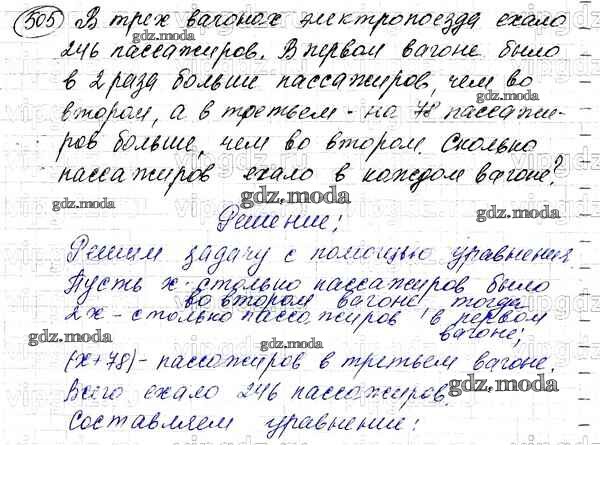 505 В трех вагонах электропоезда ехало
246 пассажиров. В первом вагоне было
в 2 раза больше пассажиров, чем во
втором, а в третьем - на 78 пассажи-
ров больше, чем во втором. Сколько
пассажиров ехало в каждом вагоне?
gdz.moda
gdz.moda
gdz.moda
gdz.moda
Решение:
Решим задачу с помощью уравнения.
Пусть x - столько пассажиров было
во втором вагоне тогда
2x - столько пассажиров в первом
вагоне;
gdz.moda
gdz.moda
(x+78) - пассажиров в третьем вагоне.
Всего ехало 246 пассажиров.
gdz.moda
Составляем уравнение: